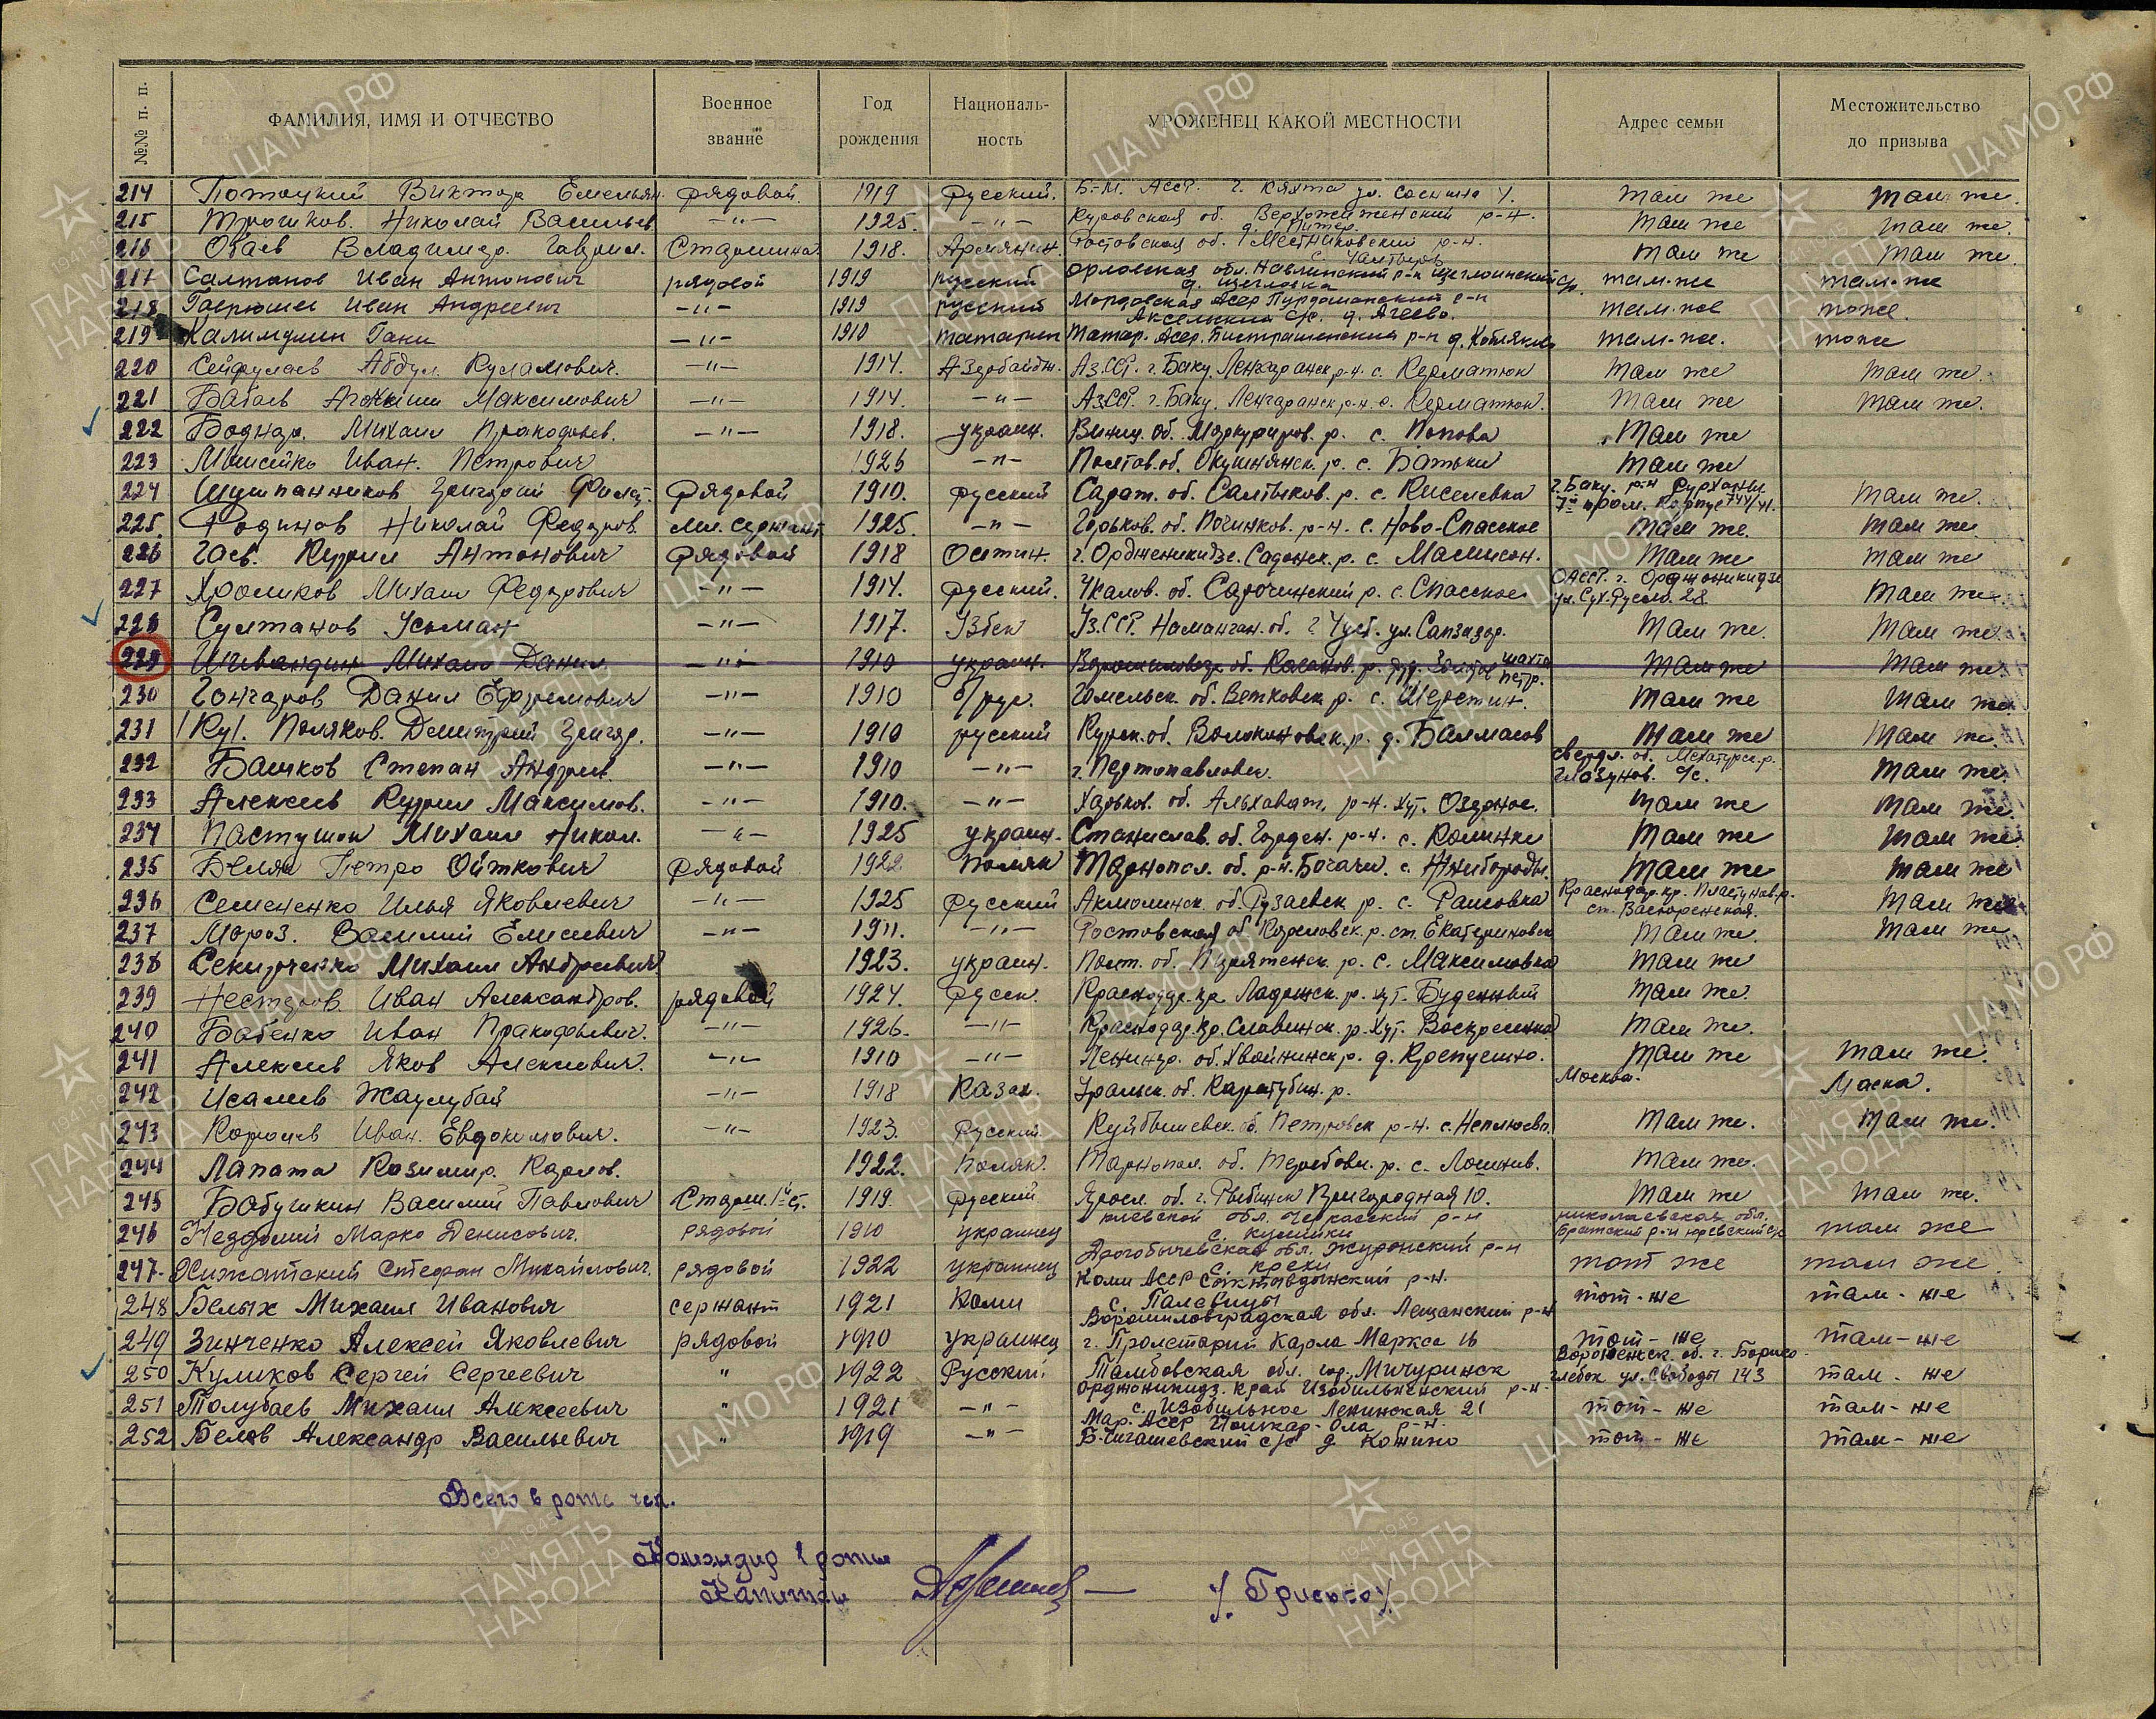 №№ п. п. ФАМИЛИЯ, ИМЯ И ОТЧЕСТВО Военное звание Год рождения Националь-ность УРОЖЕНЕЦ КАКОЙ МЕСТНОСТИ Адрес семьи Местожительство до призыва
214 Потоцкий Виктор Емельян. рядовой. 1919 Русский. Б.-М. АССР. г. Кяхта ул. 4. там же там же.
215 Трошков. Николай Васильев. —"— 1925. —"— Кировская об. Верхожиженский р-н. д. Питер. там же там же.
216 Владимир. Гаврил. Старшина. 1918. Армянин. Ростовская об. Мясниковский р-н. с. Чалтырь там же там же.
217 Салтанов Иван Антонович рядовой 1919 русский Орловская обл. Навлинский р-н Щегловский с/с. д. Щегловка там-же там-же
218 Гаврюшев Иван Андреевич —"— 1919 русский Мордовская Асср Пурдошанский р-н Аксельский с/с. д. Агеево. там-же тоже.
219 Калимулин Гани —"— 1910 татарин Татар. Асср. р-н д. там-же. тоже
220 Сейфулаев Абдул. —"— 1914. Азербайдж. Аз.ССР. г. Баку. Ленкаранск р-н. с. Керматюк там же там же.
221 Бабаев Максимович —"— 1914. —"— Аз.ССР. г. Баку. Ленкаранск р-н. с. Керматюк. там же там же.
222 Боднар. Михаил Прокофьев. —"— 1918. украин. Винниц. об. р. с. Попова там же
223 Мошейко Иван. Петрович 1926 —"— Полтов. об. р. с. Батьки там же
224 Шушпанников Григорий Филат. Рядовой 1910. русский Сарат. об. Салтыков. р. с. Киселевка г. Баку. р-н 7й пром. Корпус там же.
225. Родинов Николай Федоров. мл. сержант 1925. —"— Горьков. об. Починков. р-н. с. Ново-Спасское там же. там же.
226 Гаев. Кирил Антонович рядовой 1918 Осетин. г. Орджоникидзе. Садонск. р. с. Мамисон. там же там же
227 Хромиков Михаил Федорович —"— 1914. русский. Чкалов. об. Сарочинский р. с. Спасское ОАССР. г. Орджоникидзе ул. 28. там же.
228 Султанов Усьман —"— 1917. Узбек Уз.ССР. Наманган. об. г. Чуст. ул. там же. там же.
229 Михаил Данил. —"— 1910 украин. Ворошиловгр. об. р. шахта там же там же.
230 Гончаров Данил Ефремович —"— 1910 б/рус. Гомельск. об. Ветковск р. с. Шерстин. там же там же
231 /Ку/. Поляков. Дмитрий Григор. —"— 1910 русский Курск. об. Волоконовск. р. д. Балмасов там же там же.
232 Башков Степан Андреев. —"— 1910 —"— г. Петропавловск. Свердл. об. р. Глазунов. с/с. там же.
233 Алексеев Кирил Максимов. —"— 1910. —"— Харьков. об. р-н. хут. Озерное. там же там же.
234 Пастушок Михаил Никол. —"— 1925 украин. Станислав. об. р-н. с. Колинки там же там же.
235 Беляк Петро Ойткович рядовой 1922 Поляк Тарнопол. об. р-н. с. там же там же
236 Семененко Илья Яковлевич —"— 1925 русский Акмолинск. об. Рузаевск р. с. Раисовка Краснодар. кр. Пластунов. р. ст. Васюренская. там же
237 Мороз. Василий Елисеевич —"— 1911. —"— Ростовская об. р. ст. Екатериновск там же. там же
238 Секирченко Михаил Андреевич 1923. украин. Полт. об. Пирятинск. р. с. Максимовка там же
239 Нестеров. Иван Александров. рядовой 1924. Русск. Краснодар. кр. Ладожск. р. хут. Буденный там же.
240 Бабенко Иван Пракофьевич. —"— 1926. —"— Краснодар. кр. Славинск. р. хут. Воскресенка там же.
241 Алексеев Яков Алексеевич. —"— 1910 —"— Ленингр. об. Хвойнинск р. д. там же там же.
242 Исалиев Жаулубай —"— 1918 Казах. Уральск. об. Каратубин. р. Москва. Маска.
243 Королев Иван. Евдокимович. —"— 1923. Русский. Куйбышевск. об. Петровск р-н. с. там же. там же.
244 Лапата Казимир. Карлов. 1922. Поляк. Тарнопол. об. Теребовл. р. с. Лошнив. там же.
245 Бабушкин Василий Павлович Старш. 1й ст. 1919. русский Яросл. об. г. Рыбинск Пригородная 10. там же там же.
246 Неддомий Марко Денисович. рядовой 1910 украинец Киевской обл. Черкасский р-н с. Николаевская обл. Братский р-н Юревский с/с там же
247. Стефан Михайлович. рядовой 1922 украинец Дрогобычевская обл. Журонский р-н с. Крехи тот же там же.
248 Белых Михаил Иванович сержант 1921 Коми Коми АССР Сыктывдынский р-н. с. Палевицы тот-же там-же
249 Зинченко Алексей Яковлевич рядовой 1910 украинец Ворошиловградская обл. Лещанский р-н г. Пролетарий Карла Маркса 16 тот-же там-же
250 Куликов Сергей Сергеевич " 1922 Русский Тамбовская обл. гор. Мичуринск Воронежск об. г. Борисоглебск ул. Свободы 143 там-же
251 Толубаев Михаил Алексеевич " 1921 —"— Орджоникидз. край Изобильненский р-н. с. Изобильное Ленинская 21 тот-же там-же
252 Белов Александр Васильевич " 1919 —"— Мар. Асср Йошкар-Ола р-н. Б-Чигашевский с/с д. Кожино тот-же там-же
Всего в роте чел.
Командир 1 роты
Капитан /. Грисько /.
ЦА МО РФ
1941-1945
ПАМЯТЬ
НАРОДА